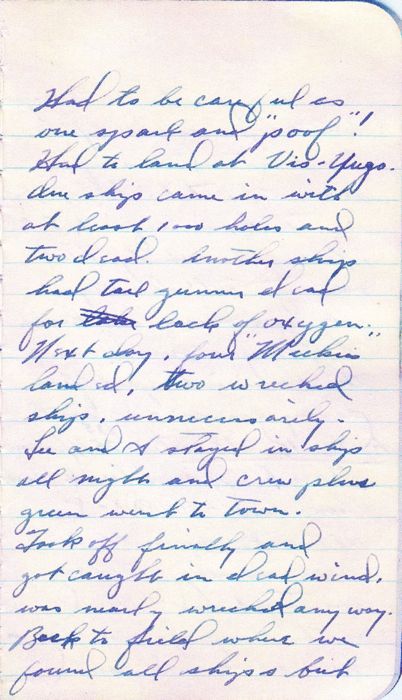 Had to be careful as
one spark and "poof"!
Had to land at Vis-Yugo.
One ship came in with
at least 100 holes and
two dead. Another ship
had tail gunner dead
for lack of oxygen.
Next day, four "Mickies"
landed, two wrecked
ships, unnecessarily.
Lee and I stayed in ship
all night and crew plus
green went to town.
Took off finally and
got caught in dead wind.
was nearly wrecked anyway.
Back to field where we
found all ships but